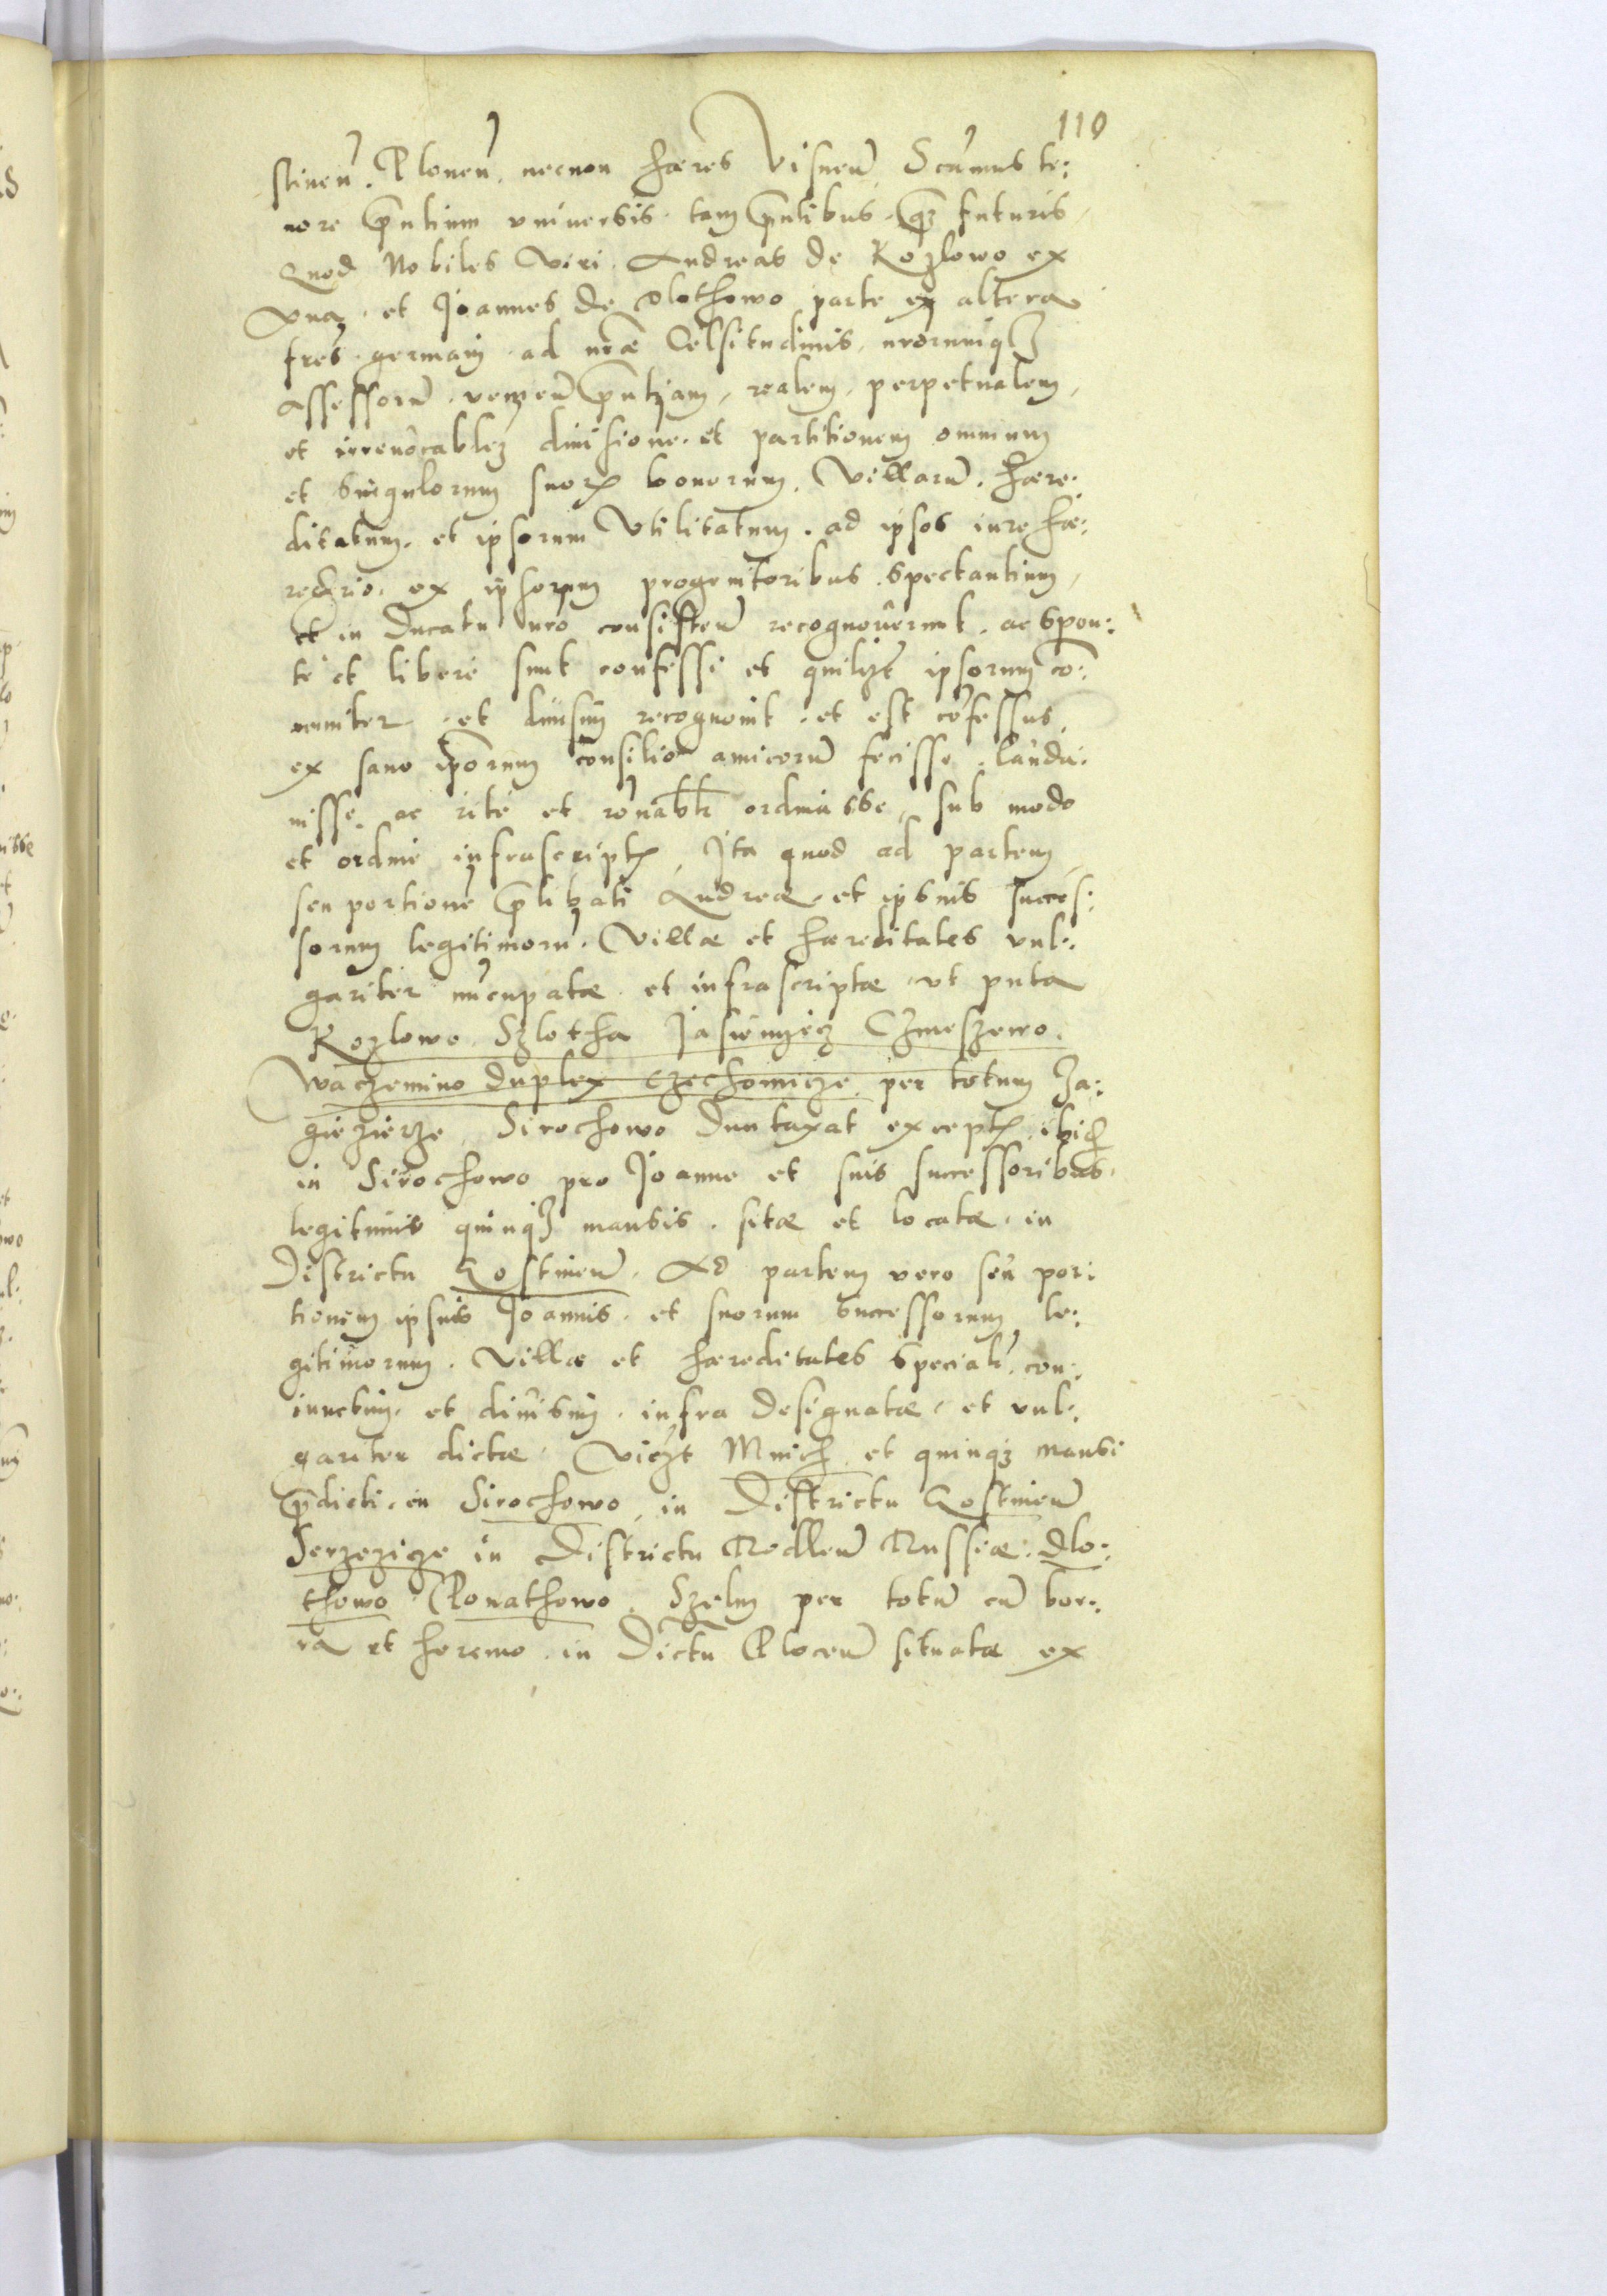 110
stinen̄. Plonen̄. necnon hæres Visnen̄ Scimus te:
nore p̄ntium vniuersis tam p̄ntibus q̃z futuris
Quod Nobiles Viri Andreas de Kozlowo ex
vna, et Joannes de Dlothowo parte ex altera
fres germani ad nr̃æ Celsitudinis, nrorumq3
Assessorū veñ p̄ntiam, realem, perpetualem,
et irreuocablēz diuisione. et partitionem omnium
et singulorum suoꝝ bonorum. Villarū. hære.
ditatum. et ipsorum Vtilitatum. ad ipsos iure hæ:
red̃rio. ex ipsorum progenitoribus spectantium,
et in Ducatu nr̃o consisten̄ recognouerunt. ac spon:
te et libere sunt confessi et quilizt ipsorum cō:
muniter. et diuisim recognouit. et est cōfessus
ex sano ip̄orum consilio amicorū fecisse. lauda:
uisse. ac rite et rōnabłr ordinasse, sub modo
et ordine infrascriptꝭ, Ita quod ad partem
seu portionē p̄libati Andreæ. et ipsius succes:
sorum legitimorū. Villæ et hæreditates vul:
gariter nūcupatæ et infrascriptæ vt puta
Kozlowo Szlotha Jasienyecz Czmeszewo.
Waczemino duplex Czechomicze per totum Ja:
gieziercze, Sirochowo duntaxat exceptꝭ ibid̃
in Sirochowo pro Joanne et suis successoribus
legitimis quinq3 mansis. sitæ et locatæ in
Districtu Gostinen̄. Ad partem vero seu por:
tionem ipsius Joannis. et suorum successorum le:
gitimorum. Villæ et hæreditates speciałr con:
iunctim. et diuisim. infra designatæ, et vul:
gariter dictæ. Viczt Mnich et quinq3 mansi
p̄dicti in Sirochowo, in Districtu Gostinen̄
Serzezicze in Districtu Nedlen̄ Russiæ. Dlo:
thowo Ponathowo. Szelm per totū cū bor:
ra et heremo in Dictū Plocen̄ situatæ ex